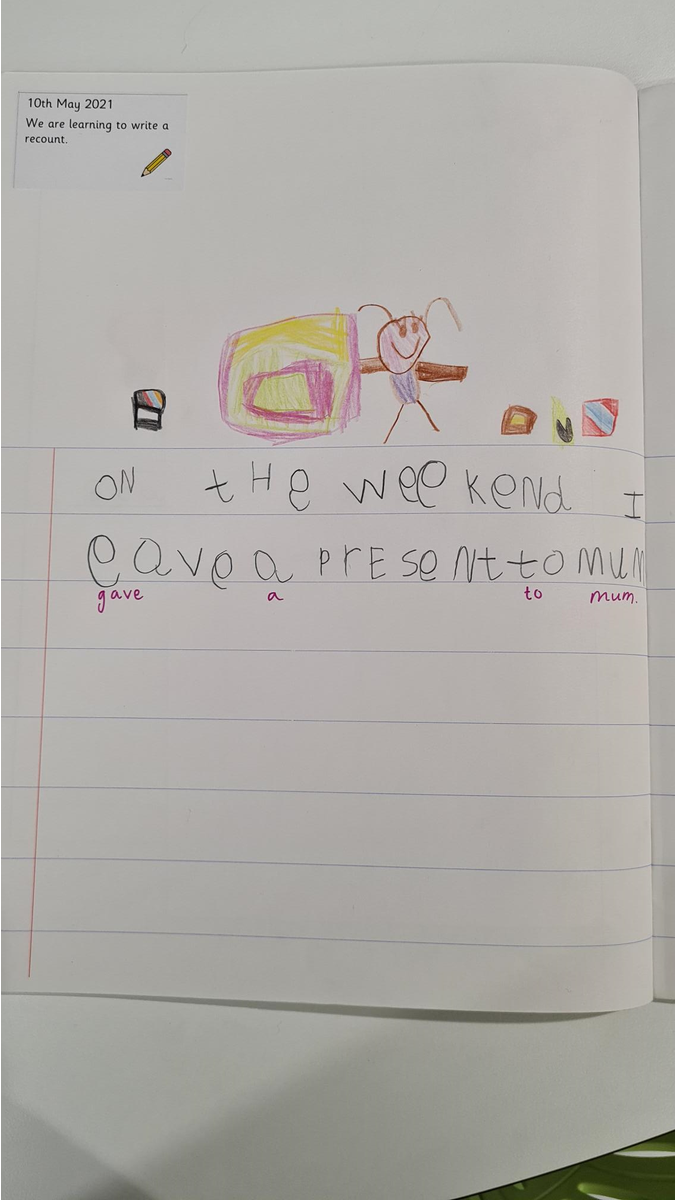 10th May 2021
We are learning to write a
recount.
ON tHe weekeNd I
eave a PrESeNt to MUM
gave a to mum.